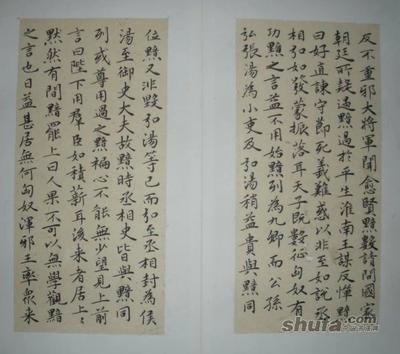 反不重邪大將軍聞愈賢黯數請問國家
朝廷所疑遇黯過於平生淮南王謀反憚黯
曰好直諫守節死義難惑以非至如說丞
相弘如發蒙振落耳天子既數征匈奴有
功黯之言益不用始黯列為九卿而公孫
弘張湯為小吏及弘湯稍益貴與黯同
位黯又非毀弘湯等已而弘至丞相封為侯
湯至御史大夫故黯時丞相史皆與黯同
列或尊用過之黯褊心不能無少望見上前
言曰陛下用羣臣如積薪耳後來者居上上
默然有間黯罷上曰人果不可以無學觀黯
之言也日益甚居無何匈奴渾邪王率衆來
shufa.com